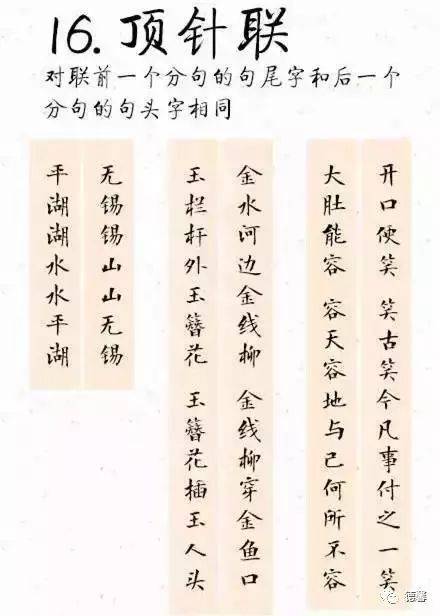 16. 顶针联
对联前一个分句的句尾字和后一个
分句的句头字相同
开口便笑 笑古笑今凡事付之一笑
大肚能容 容天容地与己何所不容
金水河边金线柳 金线柳穿金鱼口
玉栏杆外玉簪花 玉簪花插玉人头
无锡锡山山无锡
平湖湖水水平湖
德馨